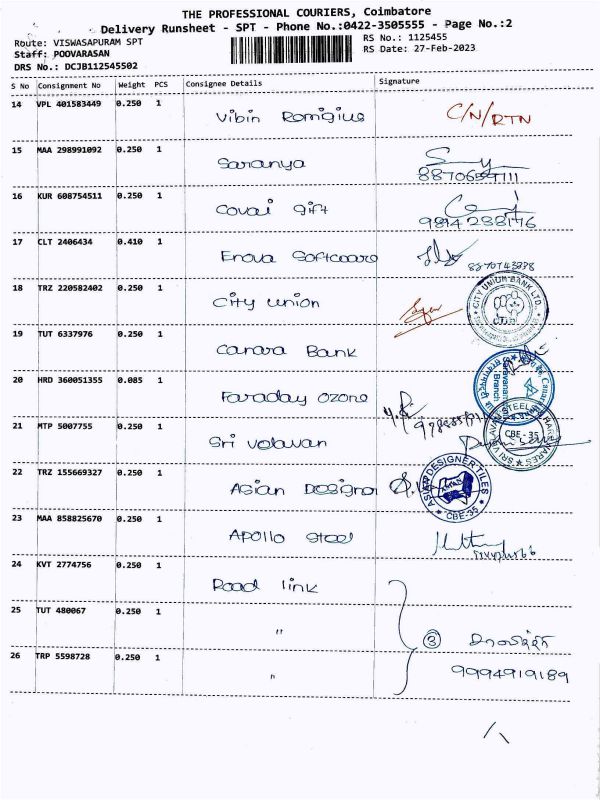 THE PROFESSIONAL COURIERS, Coimbatore
Delivery Runsheet - SPT - Phone No.:0422-3505555 - Page No.:2
Route: VISWASAPURAM SPT
RS No.: 1125455
Staff: POOVARASAN
RS Date: 27-Feb-2023
DRS No.: DCJB112545502
S No Consignment No Weight PCS Consignee Details Signature
14 VPL 401583449 0.250 1 Vibin Remigius C/N/RTN
15 MAA 298991092 0.250 1 Saranya
16 KUR 608754511 0.250 1 Covai gift 9814238176
17 CLT 2406434 0.410 1 Enova Software 8870743938
18 TRZ 220582402 0.250 1 City union CITY UNION BANK LTD.
19 TUT 6337976 0.250 1 Canara Bank
20 HRD 360051355 0.085 1 Faraday ozone
21 MTP 5007755 0.250 1 Sri velavan CBE - 35
22 TRZ 155669327 0.250 1 Asian Designer ASIAN DESIGNER TILES CBE-35
23 MAA 858825670 0.250 1 Apollo steel
24 KVT 2774756 0.250 1 Road link
25 TUT 480067 0.250 1 " 3
26 TRP 5598728 0.250 1 " 9994919189